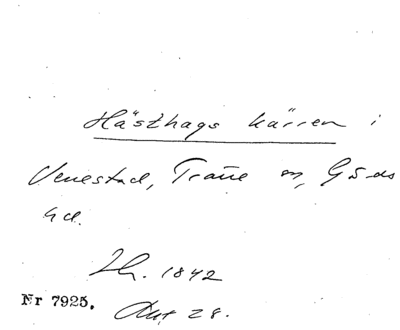 Hästhags kärren i
Venestad, Träne sn, Gärds
hd.
Lh. 1842
Nr 7925.
Akt 28.